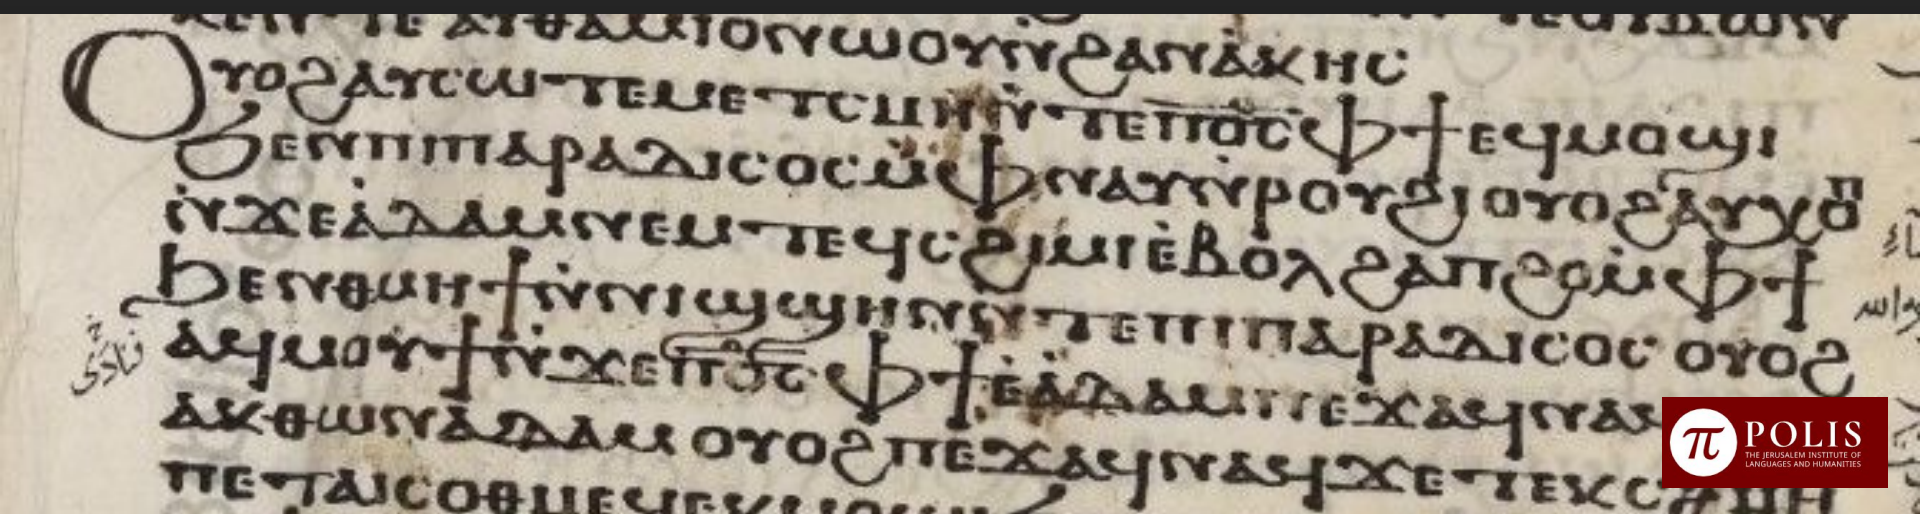 ⲁⲩⲑⲁⲙⲓⲟⲛⲱⲟⲩⲛ̇ϩⲁⲛⲁ̇ⲕⲏⲥ
Ⲟⲩⲟϩⲁⲩⲥⲱⲧⲉⲙⲉⲧⲥⲙⲏⲛ̇ⲧⲉⲡⲟ̅ⲥ̅ⲫϯⲉϥⲙⲟϣⲓ
ϧⲉⲛⲡⲓⲡⲁⲣⲁⲇⲓⲥⲟⲥⲙ̇ⲫⲛⲁⲩⲛ̇ⲣⲟⲩϩⲓⲟⲩⲟϩⲁⲩⲭⲟⲡ
ⲛ̇ϫⲉⲁ̇ⲇⲁⲙⲛⲉⲙⲧⲉϥⲥϩⲓⲙⲓⲉ̇ⲃⲟⲗϩⲁⲡϩⲟⲙ̇ⲫϯ
ϧⲉⲛⲑⲙⲏϯⲛ̇ⲛⲓϣϣⲏⲛⲛ̇ⲧⲉⲡⲓⲡⲁⲣⲁⲇⲓⲥⲟⲥ ⲟⲩⲟϩ
ⲁϥⲙⲟⲩϯⲛ̇ϫⲉⲡⲟ̅ⲥ̅ⲫϯⲉ̇ⲁ̇ⲇⲁⲙⲡⲉϫⲁϥⲛⲁϥ
ⲁⲕⲑⲱⲛⲁⲇⲁⲙ ⲟⲩⲟϩⲡⲉϫⲁϥⲛⲁϥϫⲉⲧⲉⲕⲥⲙⲏ
ⲡⲉⲧⲁⲓⲥⲟⲑⲙⲉⲥ
نادى
POLIS
THE JERUSALEM INSTITUTE OF
LANGUAGES AND HUMANITIES